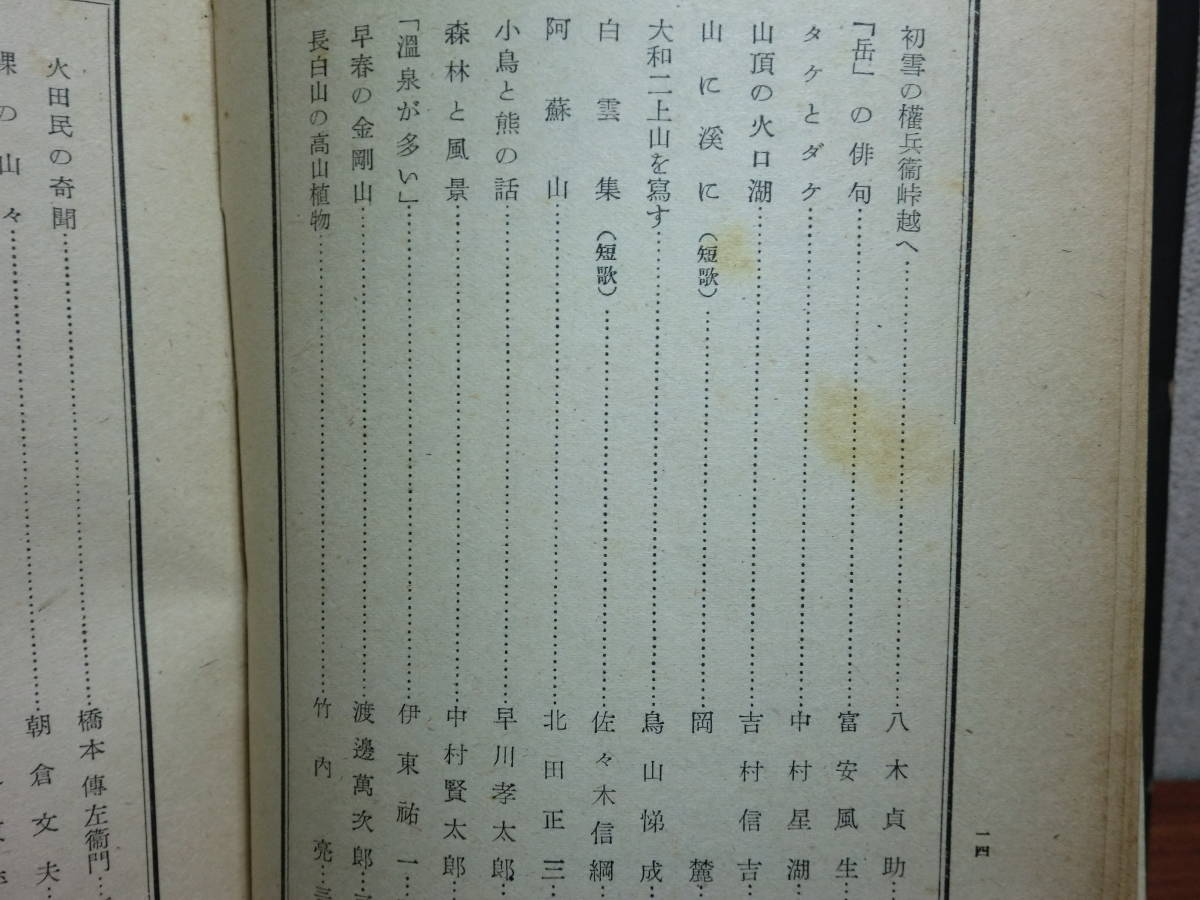 初雪の權兵衞峠越へ……八木貞助……
「岳」の俳句……富安風生……
タケとダケ……中村星湖……
山頂の火口湖……吉村信吉……
山に溪に（短歌）……岡麓……
大和二上山を寫す……鳥山悌成……
白雲集（短歌）……佐々木信綱……
阿蘇山……北田正三……
小鳥と熊の話……早川孝太郎……
森林と風景……中村賢太郎……
「溫泉が多い」……伊東祐一……
早春の金剛山……渡邊萬次郎……
長白山の高山植物……竹內亮……
一四
火田民の奇聞……橋本傳左衞門……
裸の山々……朝倉文夫……